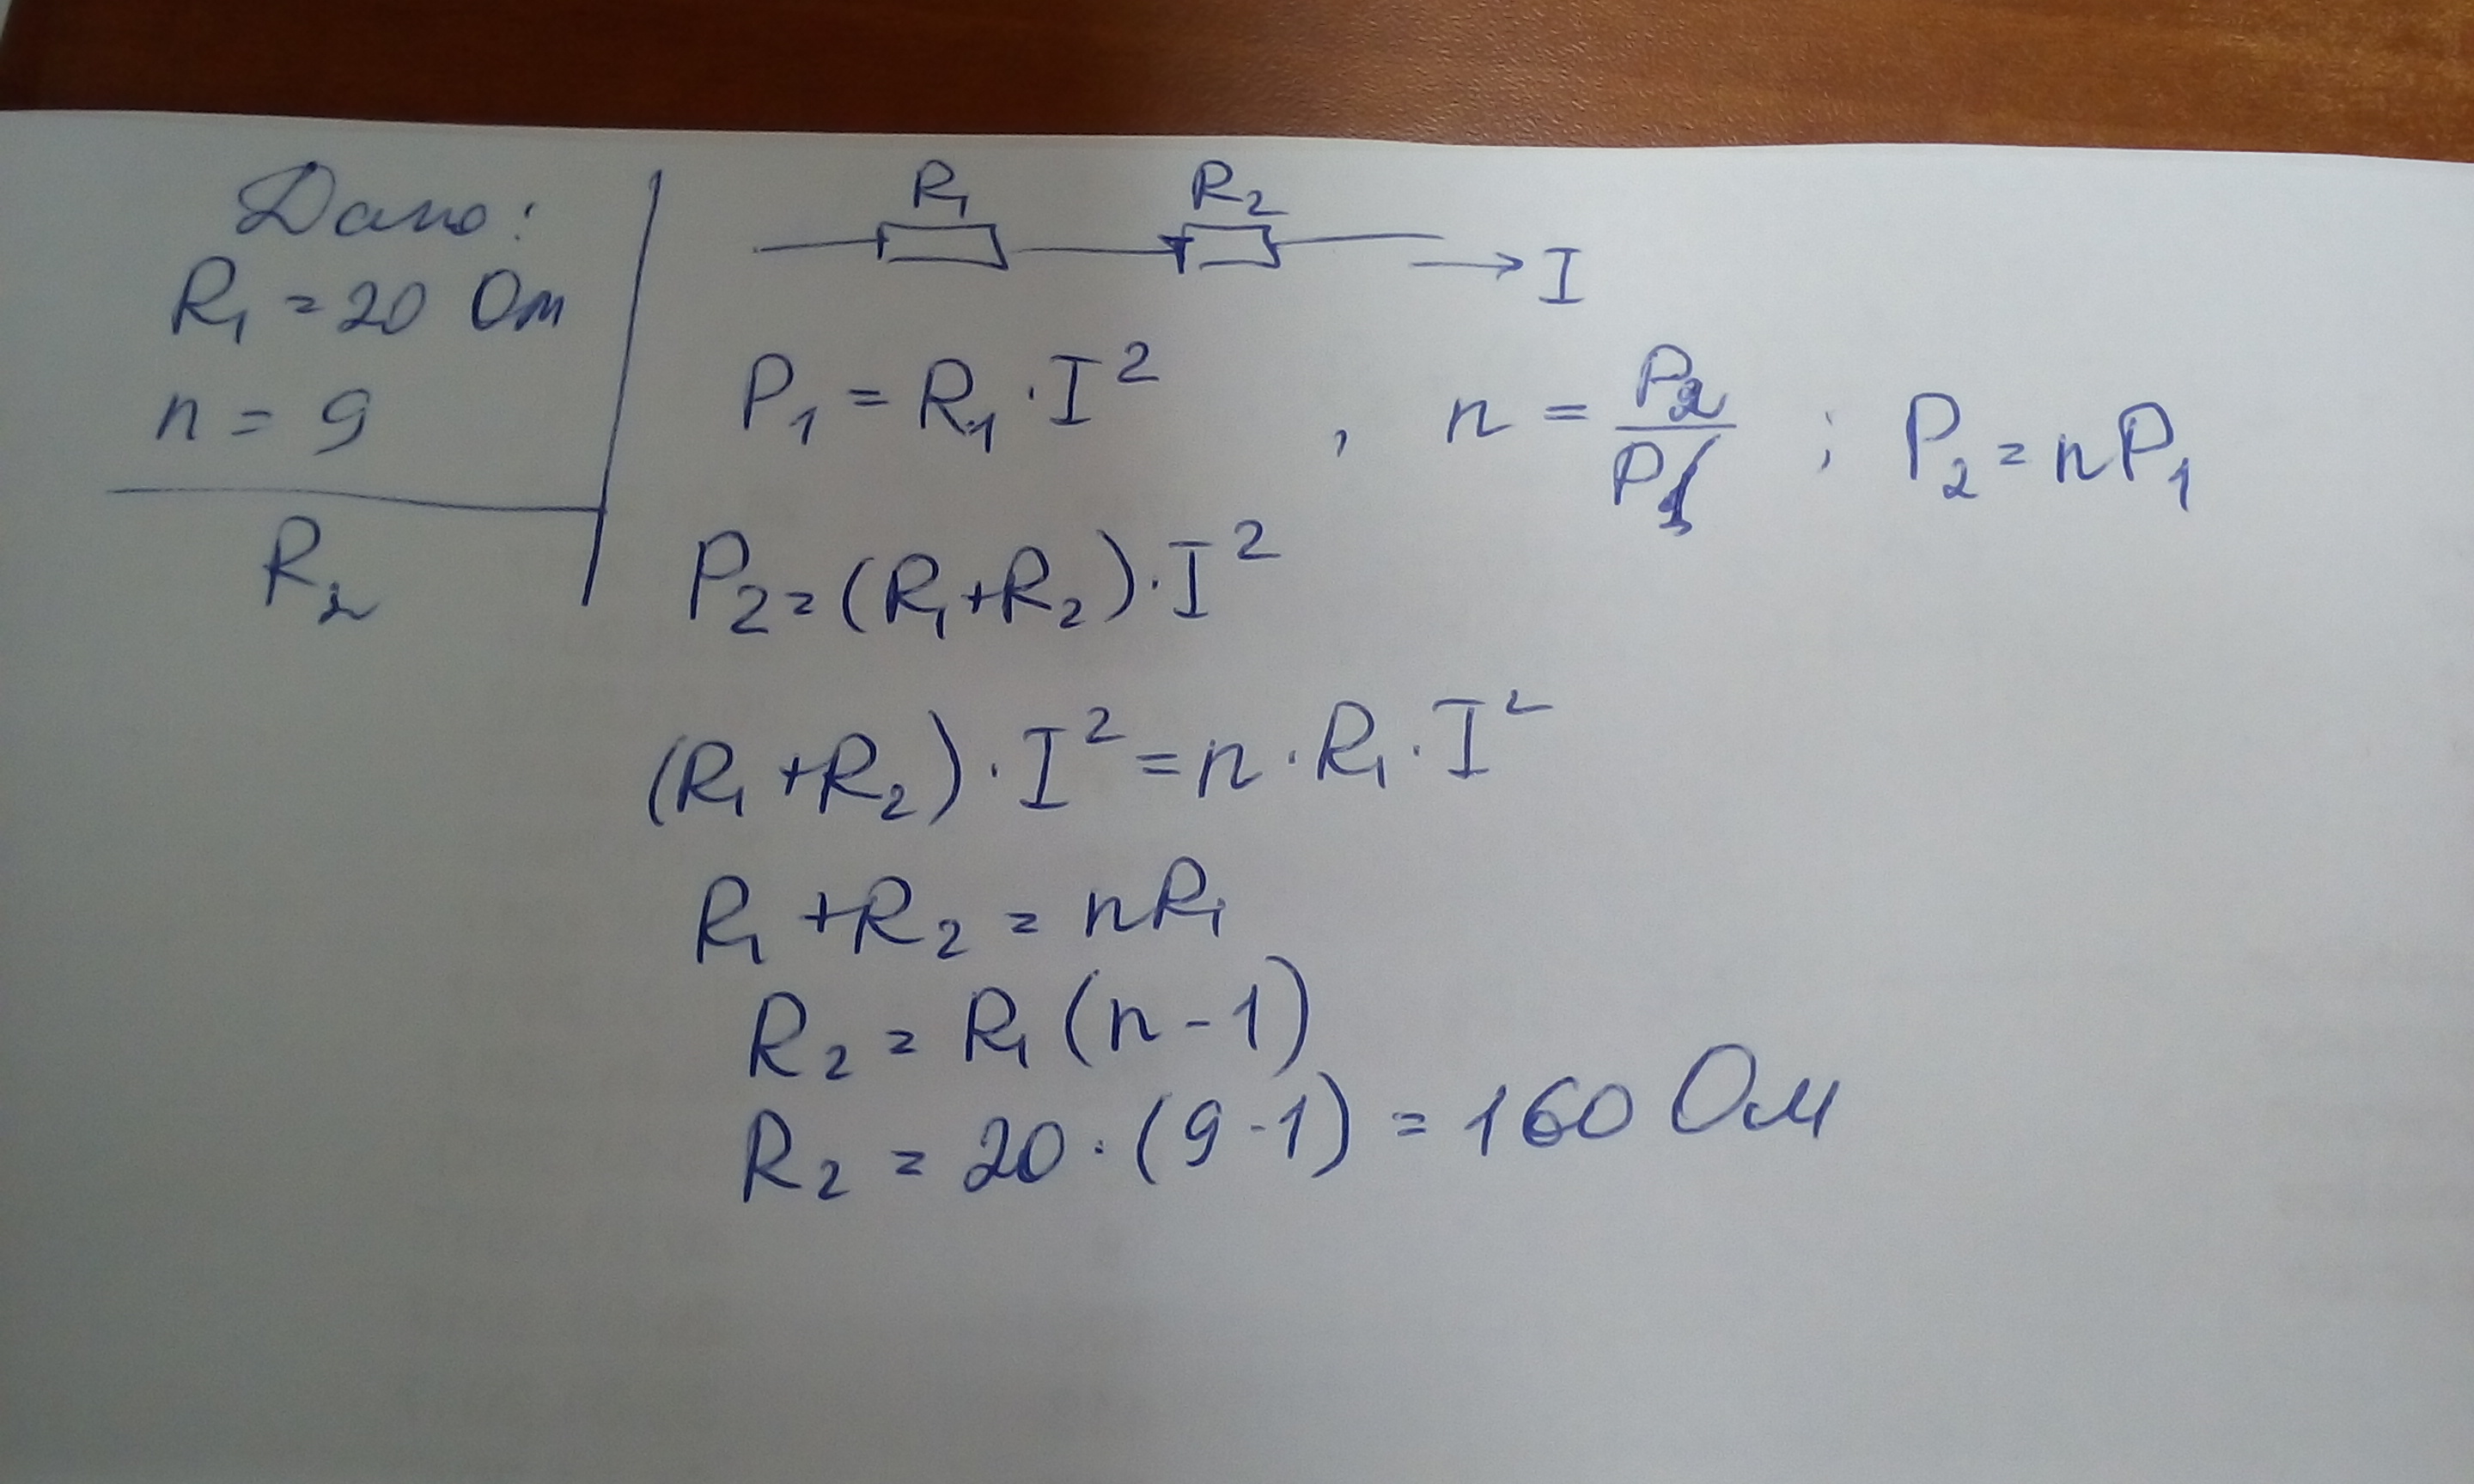 Дано:
R₁ = 20 Ом
n = 9
R₂
R₁ R₂
I
P₁ = R₁ · I² , n = P₂/P₁ ; P₂ = nP₁
P₂ = (R₁+R₂) · I²
(R₁+R₂) · I² = n · R₁ · I²
R₁ + R₂ = nR₁
R₂ = R₁ (n - 1)
R₂ = 20 · (9 - 1) = 160 Ом